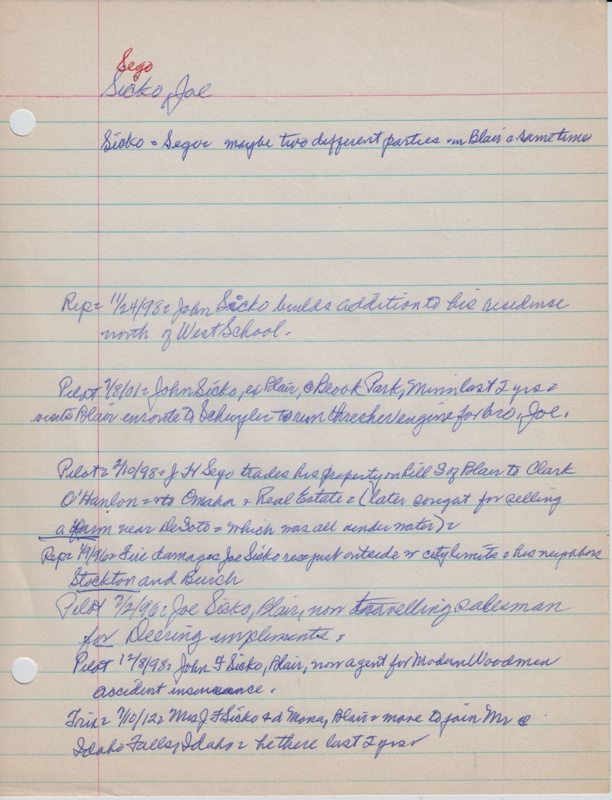 Sego
Sicko, Joe
Sicko = Segor maybe two different parties in Blair @ sometime
Rep= 11/24/98= John Sicko builds addition to his residense
north of West School.
Pilot 7/8/01= John Sicko, ex Blair, @ Brook Park, Minn last 2 yrs =
Blair enroute to Schuyler to run thresher engine for bro, Joe.
Pilot= 2/10/98= J H Sego trades his property on hill S of Blair to Clark
O'Hanlon = to Omaha = Real Estate = (later sought for selling
a farm near DeSoto = which was all under water) =
Rep= 1/9/96= Fire damages Joe Sicko res= just outside city limits = his neighbors
Stockton and Burch
Pilot 7/2/96= Joe Sicko, Blair, now travelling salesman
for Deering implements =
Pilot 12/8/98= John F Sicko, Blair, now agent for Modern Woodmen
accident insurance.
Trib= 7/10/12= Mrs J F Sicko & d Mona, Blair = move to join Mr @
Idaho Falls, Idaho = he there last 2 yrs